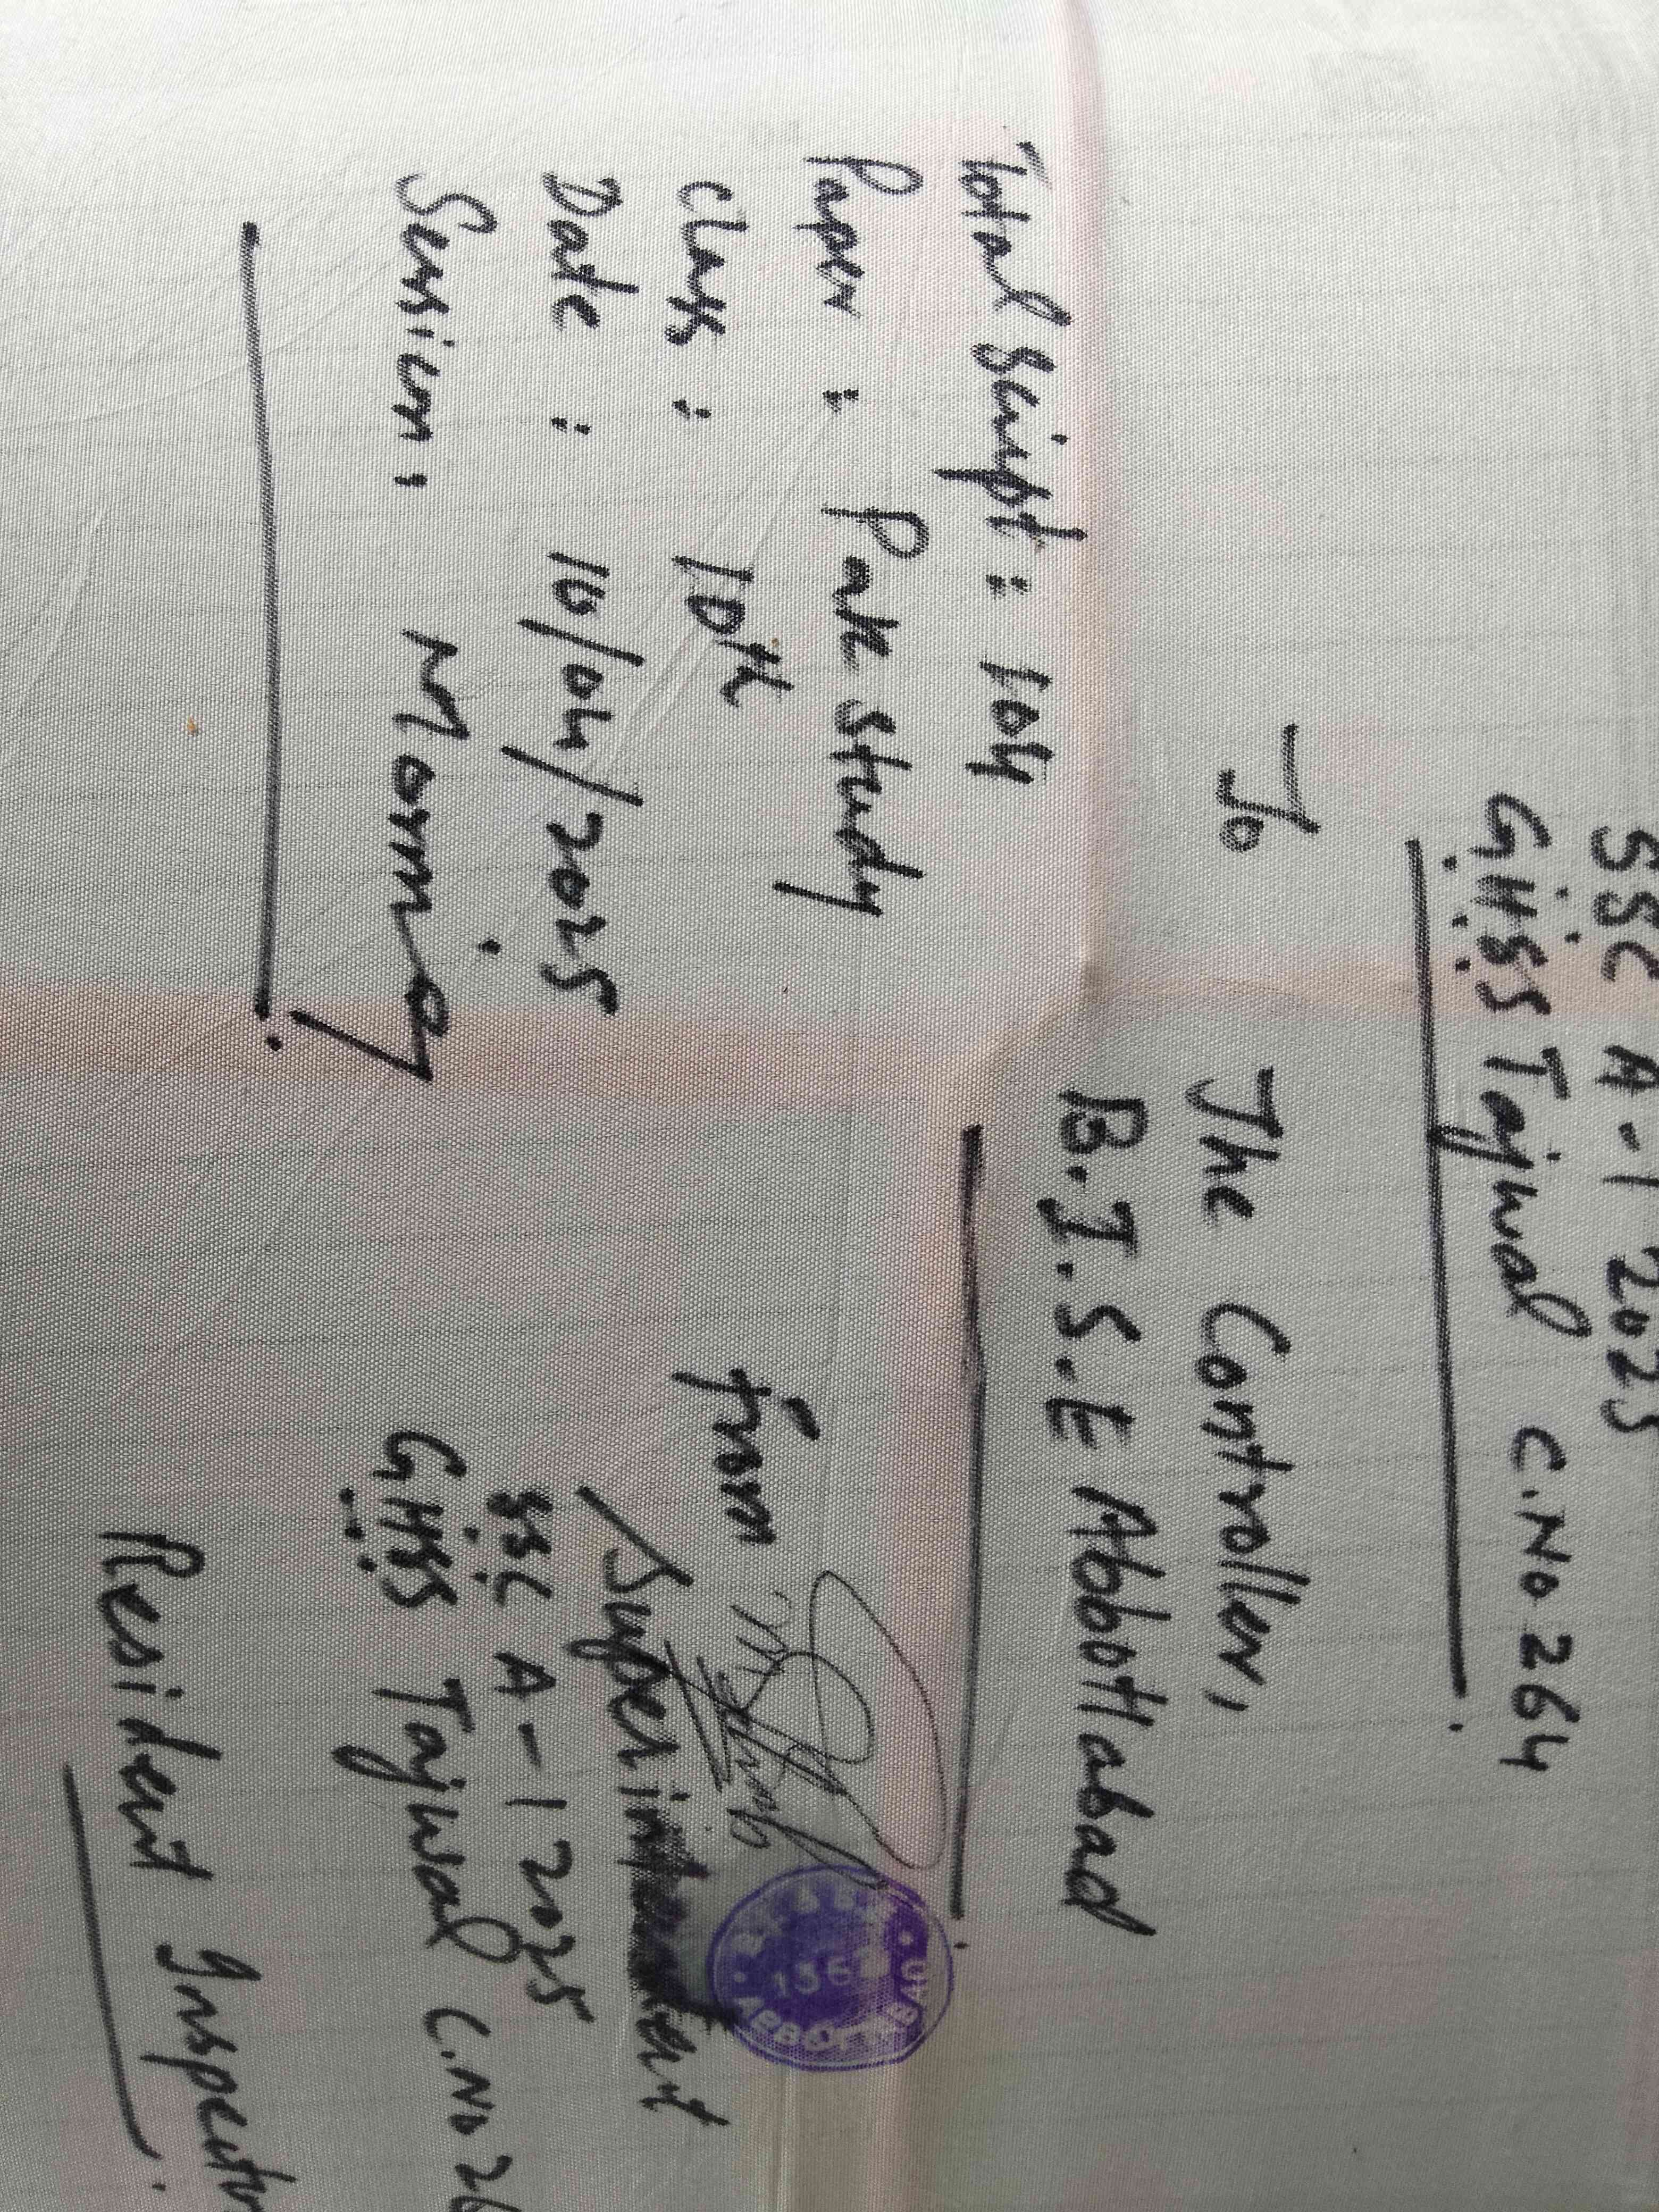 SSC A-1 2025
G.H.S.S Tajwal C.No 264
To
The Controller,
B.I.S.E Abbottabad
Total Script: 104
Paper : Pak study
Class : 10th
Date : 10/04/2025
Session: Morning
From
Superintendent
SSC A-1 2025
G.H.S.S Tajwal C.No 26
Resident Inspector
ABBOTTABAD